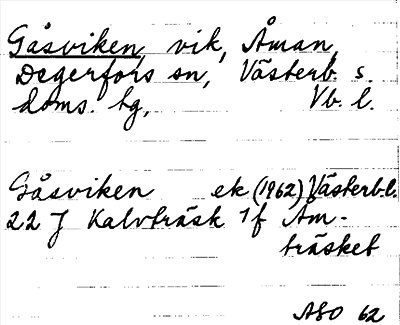 Gåsviken, vik, Åman,
Degerfors sn, Västerb. s.
doms. tg, Vb. l.
Gåsviken ek (1962) Västerb.l.
22 J Kalvträsk 1f Åm-
träsket
ASO 62